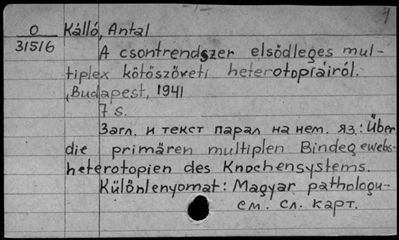 O
31516
Kálló, Antal
A csontrendszer elsődleges mul-
tiplex kötőszöveti heterotopiáiról.
Budapest, 1941
7 s.
Загл. и текст парал на нем. яз.: Über
die primären multiplen Bindegewebs-
heterotopien des Knochensystems.
Különlenyomat: Magyar pathologu-
см. сл. карт.